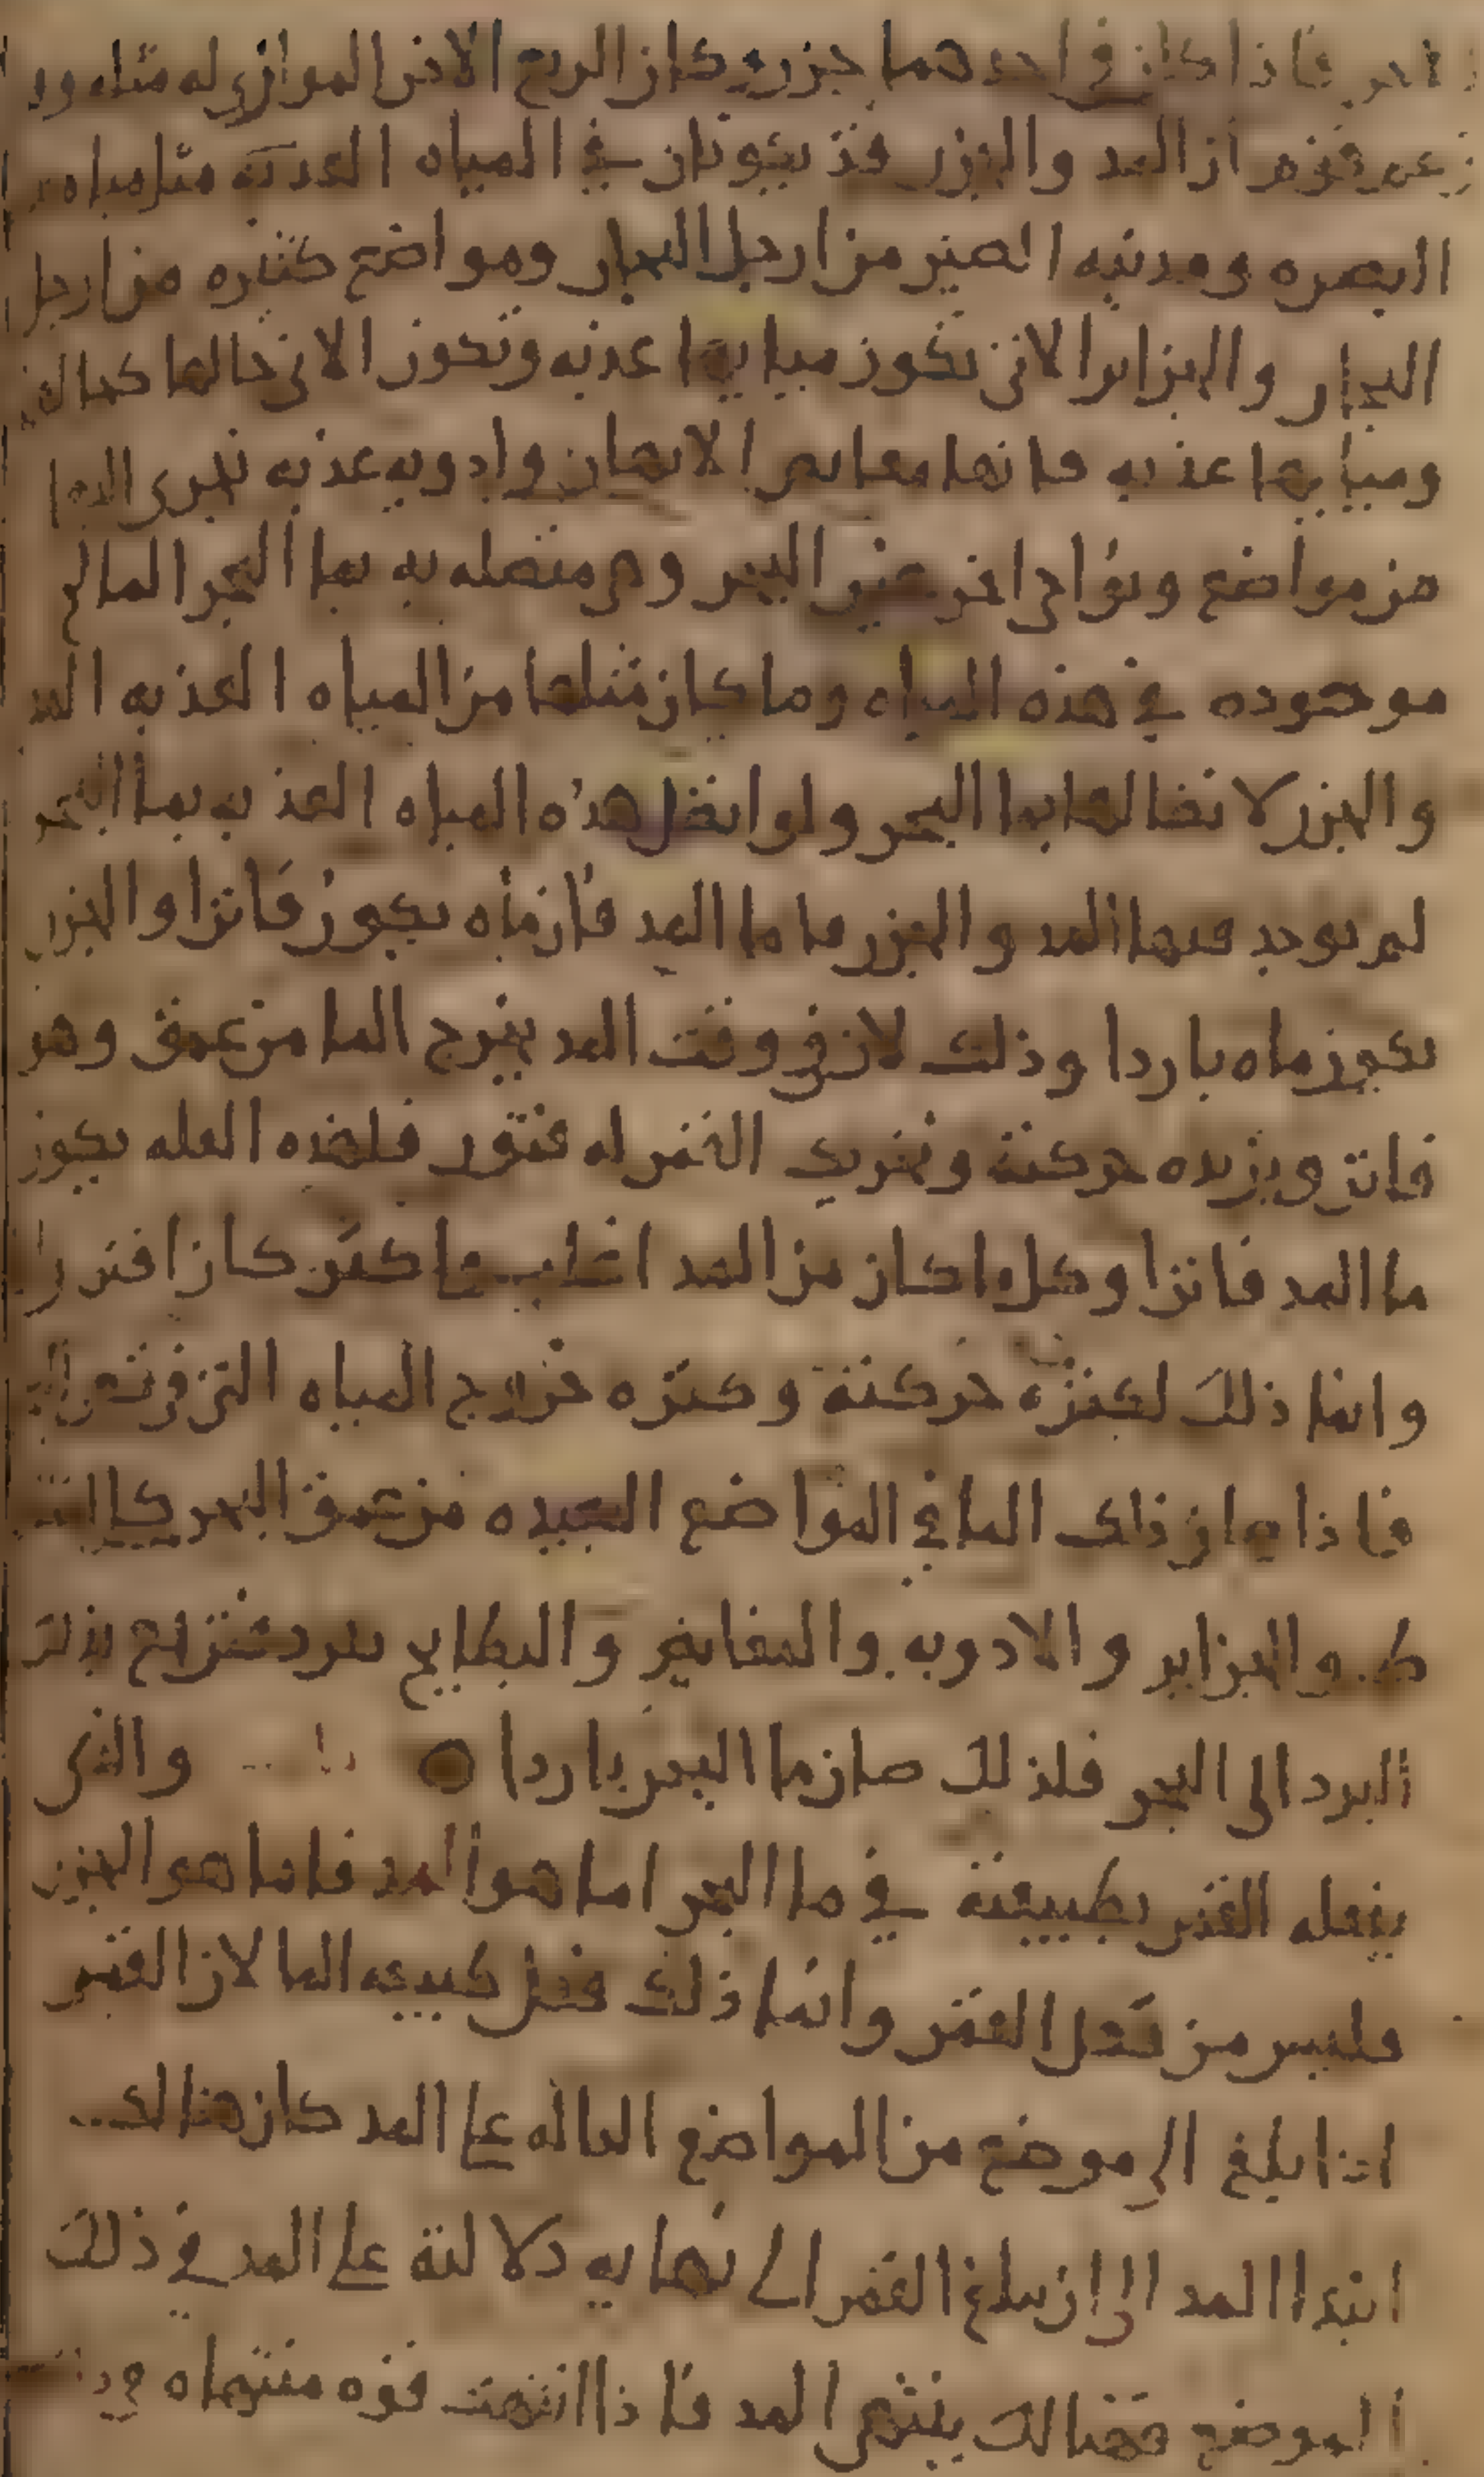 فاذا كان في احدهما جزر كان الربع الاخر الموازي له مثله وا
زعم قوم ان المد والجزر قد يكونان في المياه العذبه مثل مياه
البصره ومدينه الصين من ارجل البحار ومواضع كثيره من ارجل
البحار والجزاير الاتي تكون مياهها عذبه وتكون الاتي حالها كحال
ومياهها عذبه فانها مغايص الانهار وادويه عذبه تجري اليها
من مواضع ونواحي اخر غير البحر وهي متصله به بما البحر المالح
موجوده في هذه المياه وما كان مثلها من المياه العذبه المد
والجزر لاتصالها بما البحر ولو اتصل هذه المياه العذبه بما البحر
لم يوجد فيها المد والجزر فاما المد فان ماه يكون فاترا والجزر
يكون ماه باردا وذلك لان في وقت المد يخرج الما من عمق وهو
فاتر ويزيده حركته وتحريك القمر له فتور فلهذه العله يكون
ما المد فاترا وكل ما كان من المد اغلب واكثر كان افتر
وانما ذلك لكثره حركته وكثره خروج المياه التي في
فاذا صار ذلك الما في المواضع البعيده من عمق البحر
والجزاير والادويه والمغايض والبطايح يبرد فتراجع بذلك
البرد الى البحر فلذلك صار ما البحر باردا ○ والذي
يفعله القمر بطبيعته في ما البحر اما هو المد فاما هو الجزر
فليس من فعل القمر وانما ذلك فعل طبيعه الما لان القمر
اذا بلغ الى موضع من المواضع الداله على المد كان هنالك
ابتدا المد الى ان يبلغ القمر الى نهايه دلالته على المد في ذلك
الموضع فهنالك ينتهي المد فاذا انتهت قوه منتهاه